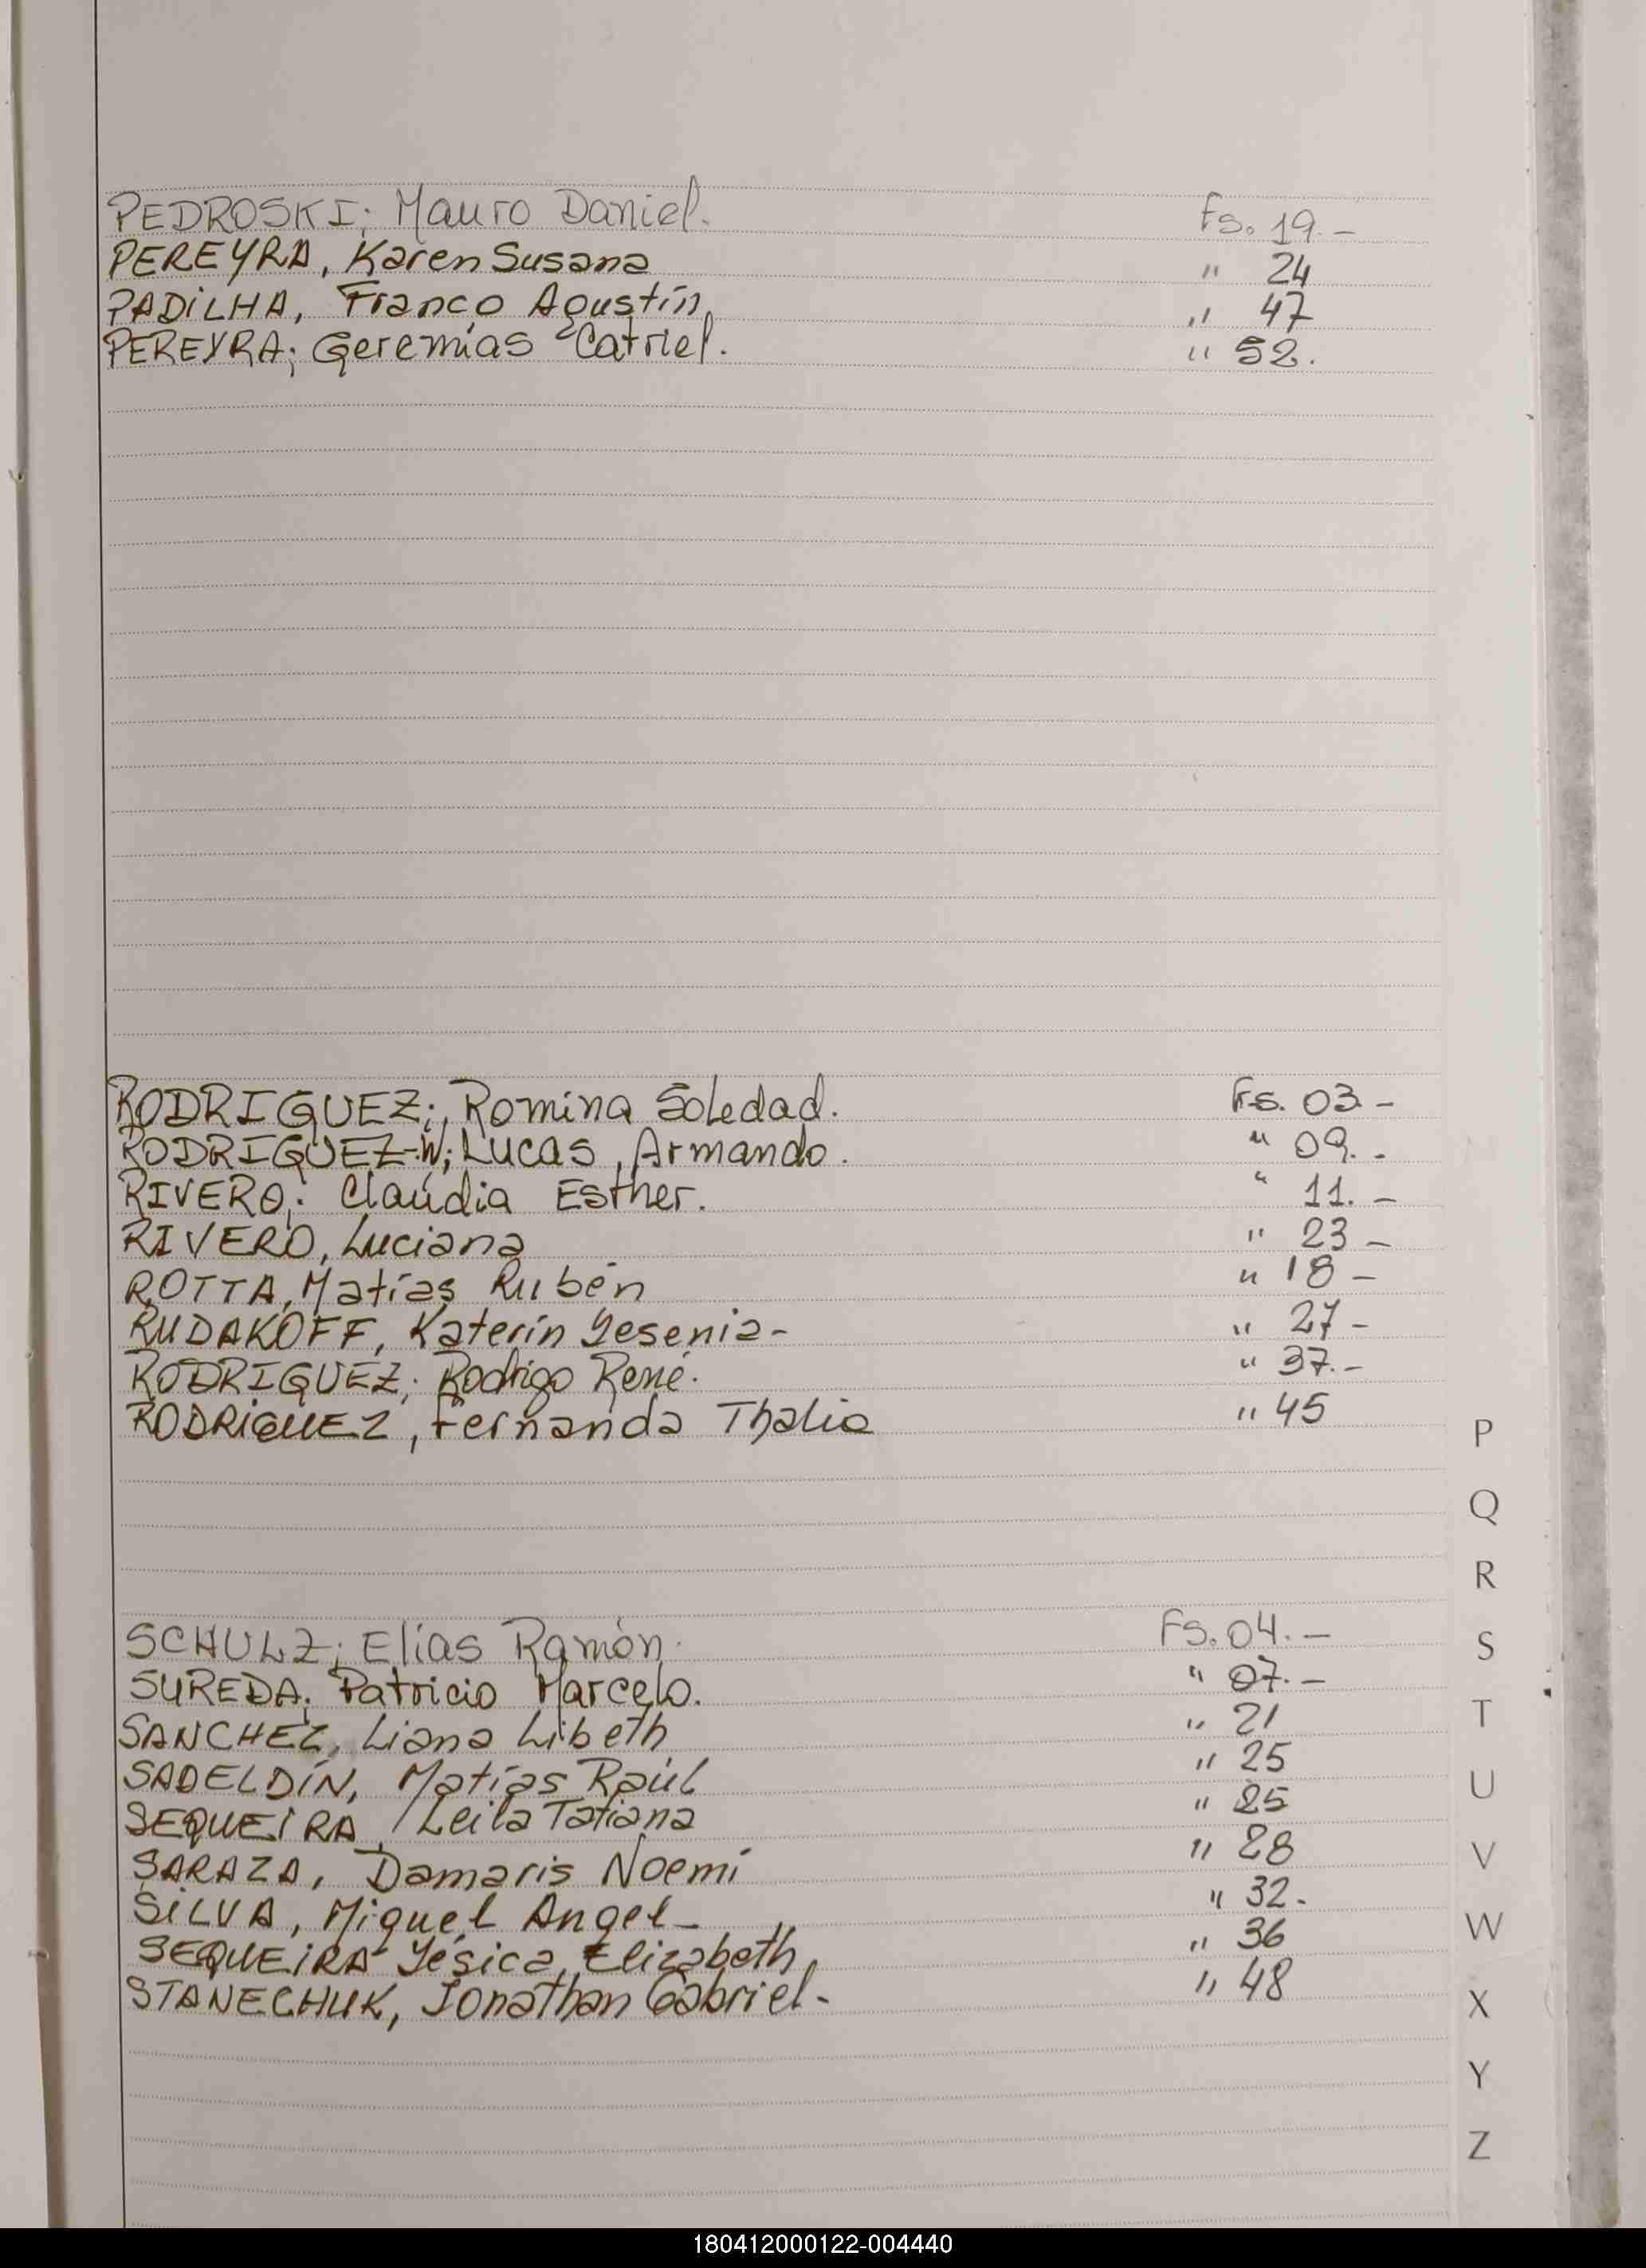 PEDROSKI; Mauro Daniel. Fs. 19.-
PEREYRA, Karen Susana " 24
PADILHA, Franco Agustín, " 47
PEREYRA; Geremías Catriel. " 52.
RODRIGUEZ; Romina Soledad. Fs. 03-
RODRIGUEZ-W; Lucas, Armando. " 09.-
RIVERO; Claudia Esther. " 11.-
RIVERO, Luciana " 23-
ROTTA, Matías Rubén " 18-
RUDAKOFF, Katerin Yesenia- " 27-
RODRIGUEZ; Rodrigo René. " 37.-
RODRIGUEZ, Fernanda Thalia " 45
SCHULZ; Elías Ramón. Fs. 04.-
SUREDA; Patricio Marcelo. " 07.-
SANCHEZ, Liana Libeth " 21
SADELDÍN, Matías Raúl " 25
SEQUEIRA, Leila Tatiana " 25
SARAZA, Damaris Noemí " 28
SILVA, Miguel Angel- " 32-
SEQUEIRA Yésica, Elizabeth " 36
STANECHUK, Jonathan Gabriel- " 48
P
Q
R
S
T
U
V
W
X
Y
Z
180412000122-004440